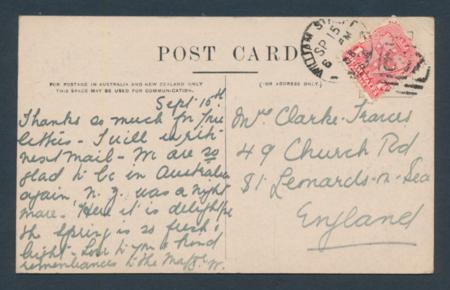 POST CARD
FOR POSTAGE IN AUSTRALIA AND NEW ZEALAND ONLY
THIS SPACE MAY BE USED FOR COMMUNICATION.
(FOR ADDRESS ONLY.)
WILLIAM ST
SP 15
Sept. 15th
Thanks so much for your
letters - I will write
next mail - We are so
glad to be in Australia
again. N.Z. was a night
mare - Here it is delightful
the spring is so fresh &
bright - Love to you & kind
remembrances to the
Clarke-Frances
49 Church Rd
St. Leonards-on-Sea
England